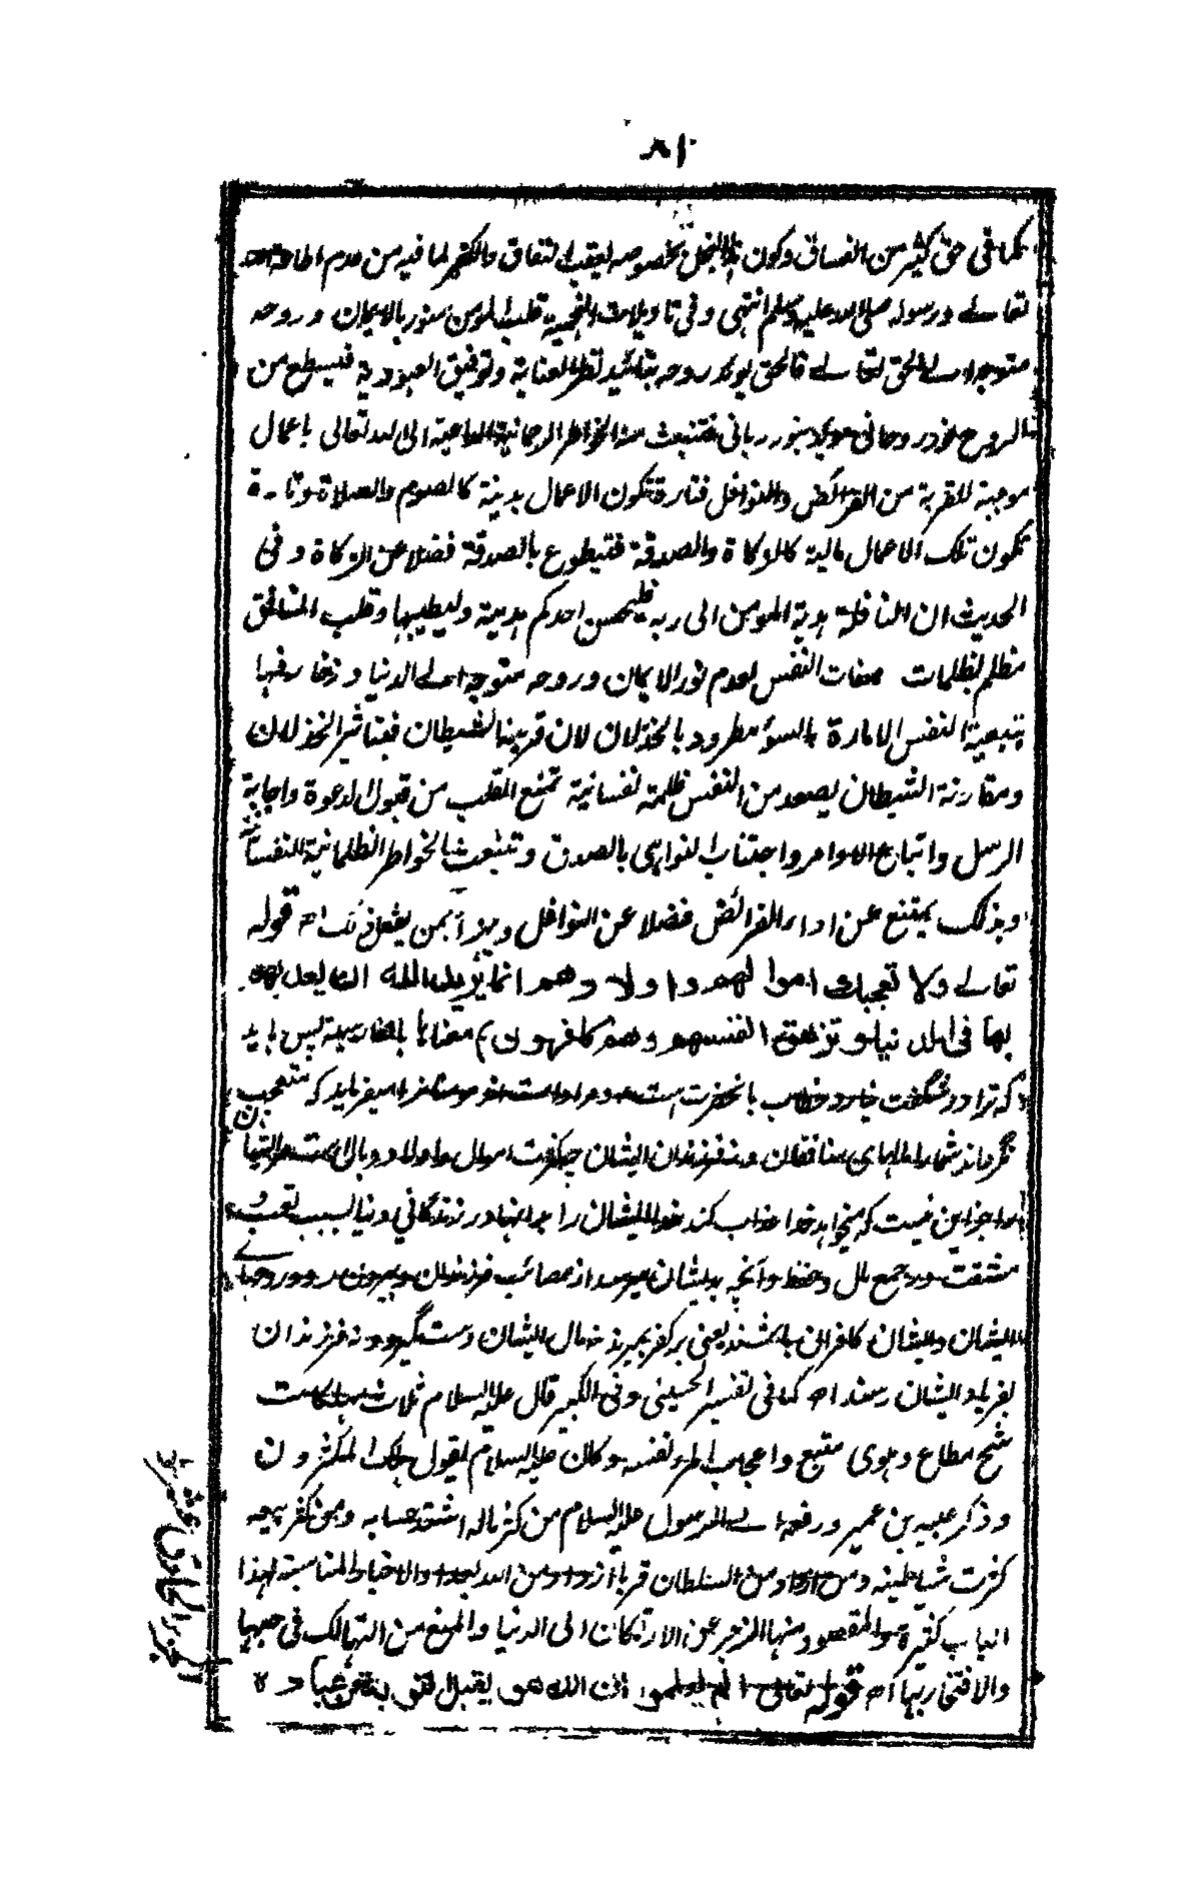 ٨١
كما فى حق كثير من الفساق وكون هذا البخل بخصوصه يعقب النفاق والكفر لما فيه من عدم اطاعة الله
تعالى ورسوله صلى الله عليه وسلم انتهى وفى تاويلات النجمية قلب المومن منور بالايمان وروحه
متوجه الى الحق تعالى فالحق يويد روحه بتائيد نظر العناية وتوفيق العبودية فيسطع من
الروح نور روحانى مويد بنور ربانى فتنبعث منه الخواطر الرحمانية الداعية الى الله تعالى باعمال
موجبة للقربة من الفرائض والنوافل فتارة تكون الاعمال بدنية كالصوم والصلاة وتارة
تكون تلك الاعمال مالية كالزكاة والصدقة فتيطوع بالصدقة فضلا عن الزكاة وفى
الحديث ان النافلة هدية المومن الى ربه فليحسن احدكم هديته وليطيبها وقلب المنافق
مظلم بظلمات صفات النفس لعدم نور الايمان وروحه متوجه الى الدنيا وزخارفها
بتبعية النفس الامارة بالسوء مطرود بالخذلان لان قرينه الشيطان فبتاثير الخذلان
ومقارنة الشيطان يصعد من النفس ظلمة نفسانية تمنع القلب من قبول الدعوة واجابة
الرسل واتباع الاوامر واجتناب النواهى بالصدق وتنبعث الخواطر الظلمانية النفسانية
وبذلك يمتنع عن اداء الفرائض فضلا عن النوافل ويهزأ بمن يفعل ذلك اه قوله
تعالى ولا تعجبك اموالهم واولادهم انما يريد الله ان يعذبهم
بها فى الدنيا وتزهق انفسهم وهم كافرون) معناها بالفارسية پس بايد
كه ترا در شگفت نيارد خطاب بآنحضرت است ومراد است اند ميفرمايد كه متعجب
نگرداند شما را مالهاى منافقان ونه فرزندان ايشان چه كثرت اموال واولاد وبال است
جز اين نيست كه ميخواهد خدا عذاب كند ايشان را بدانها در زندگانى دنيا بسبب تعب و
مشقت در جمع مال وحفظ وآنچه بديشان ميرسد از مصائب فرزندان وبيرون رود روحهاے
ايشان وايشان كافران باشند يعنى بر كفر بميرند نه مال ايشان دستگيرد ونه فرزندان
بفرياد ايشان رسند اه كما فى تفسير الحسينى وفى الكبير قال عليه السلام ثلاث مهلكات
شح مطاع وهوى متبع واعجاب المرء بنفسه وكان عليه السلام يقول هلك المكثرون
وذكر عبيد بن عمير ورفعه الى الرسول عليه السلام من كثر ماله اشتد حسابه ومن كثر بيعه
كثرت شياطينه ومن ازداد من السلطان قربا ازداد من الله بعدا والاخبار المناسبة لهذا
الباب كثيرة والمقصود منها الزجر عن الارتكان الى الدنيا والمنع من التهالك فى حبها
والافتخار بها اه قوله تعالى الم يعلموا ان الله هو يقبل التوبة عن عباده